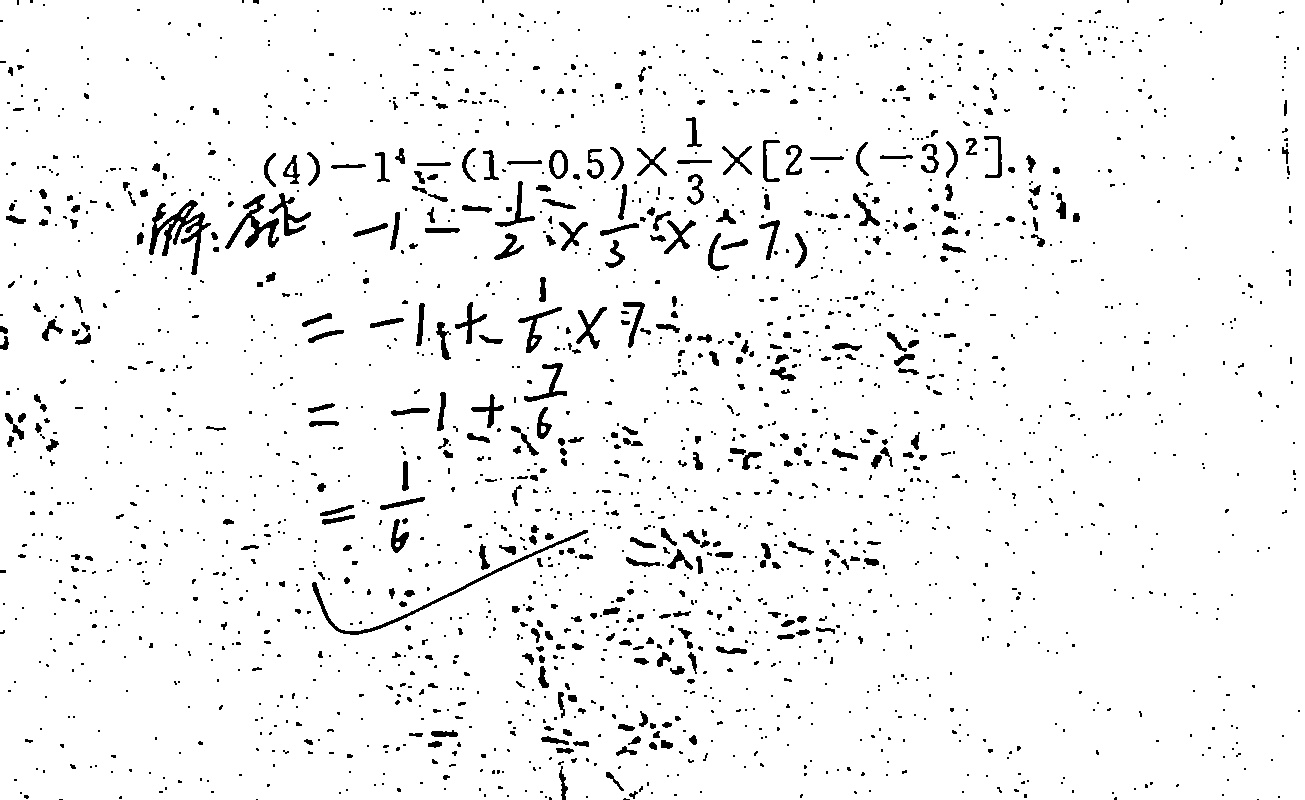 (4)－1⁴－(1－0.5)×1/3×[2－(－3)²].
解:原式 －1－1/2×1/3×(－7)
＝－1＋1/6×7
＝－1＋7/6
＝1/6